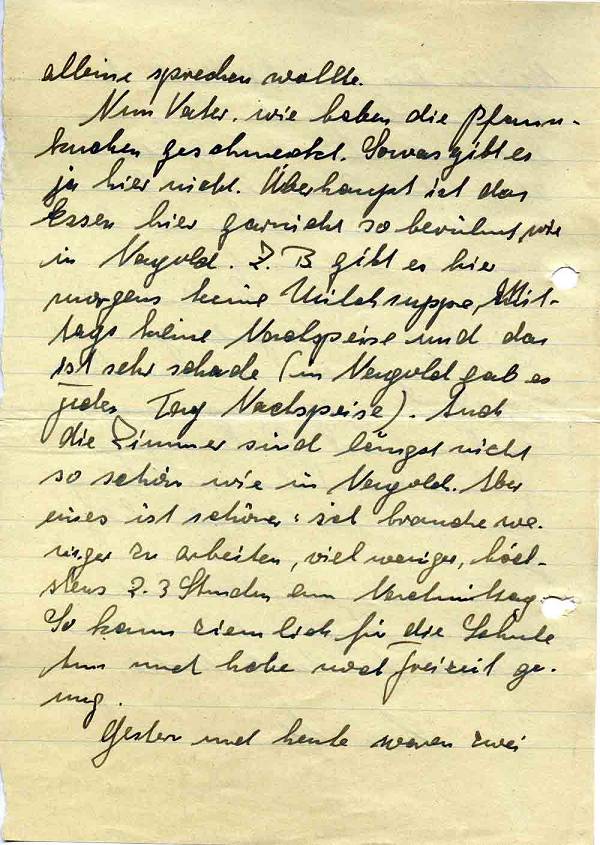 alleine sprechen wollte.
Nun Vater, wie haben die Pfann-
kuchen geschmeckt. Sowas gibt es
ja hier nicht. Überhaupt ist das
Essen hier garnicht so berühmt, wie
in Nagold. Z. B gibt es hier
morgens keine Milchsuppe, Mit-
tags keine Nachspeise und das
ist sehr schade (in Nagold gab es
jeden Tag Nachspeise). Auch
die Zimmer sind längst nicht
so schön wie in Nagold. Aber
eines ist schöner: ich brauche we-
niger zu arbeiten, viel weniger, höch-
stens 2-3 Stunden am Nachmittag.
So kann ziemlich für die Schule
tun und habe noch Freizeit ge-
nug.
Gestern und heute waren zwei